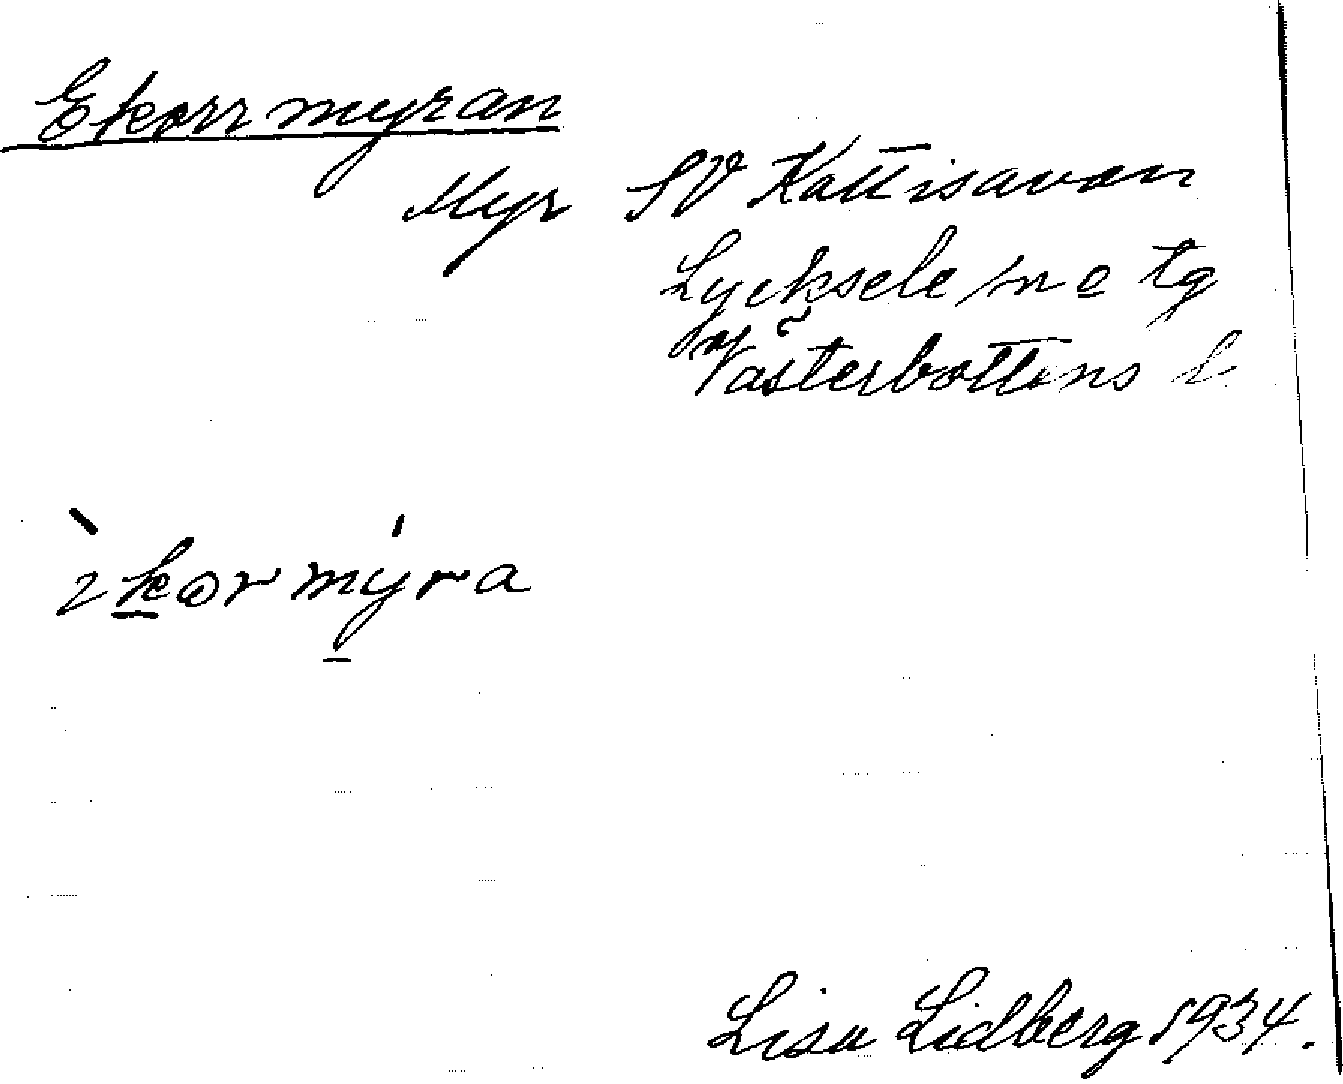 Ekorrmyran
Myr SV Kattisavan
Lycksele sn o tg
Västerbottens l.
ìkormýra
Lisa Lidberg 1934.